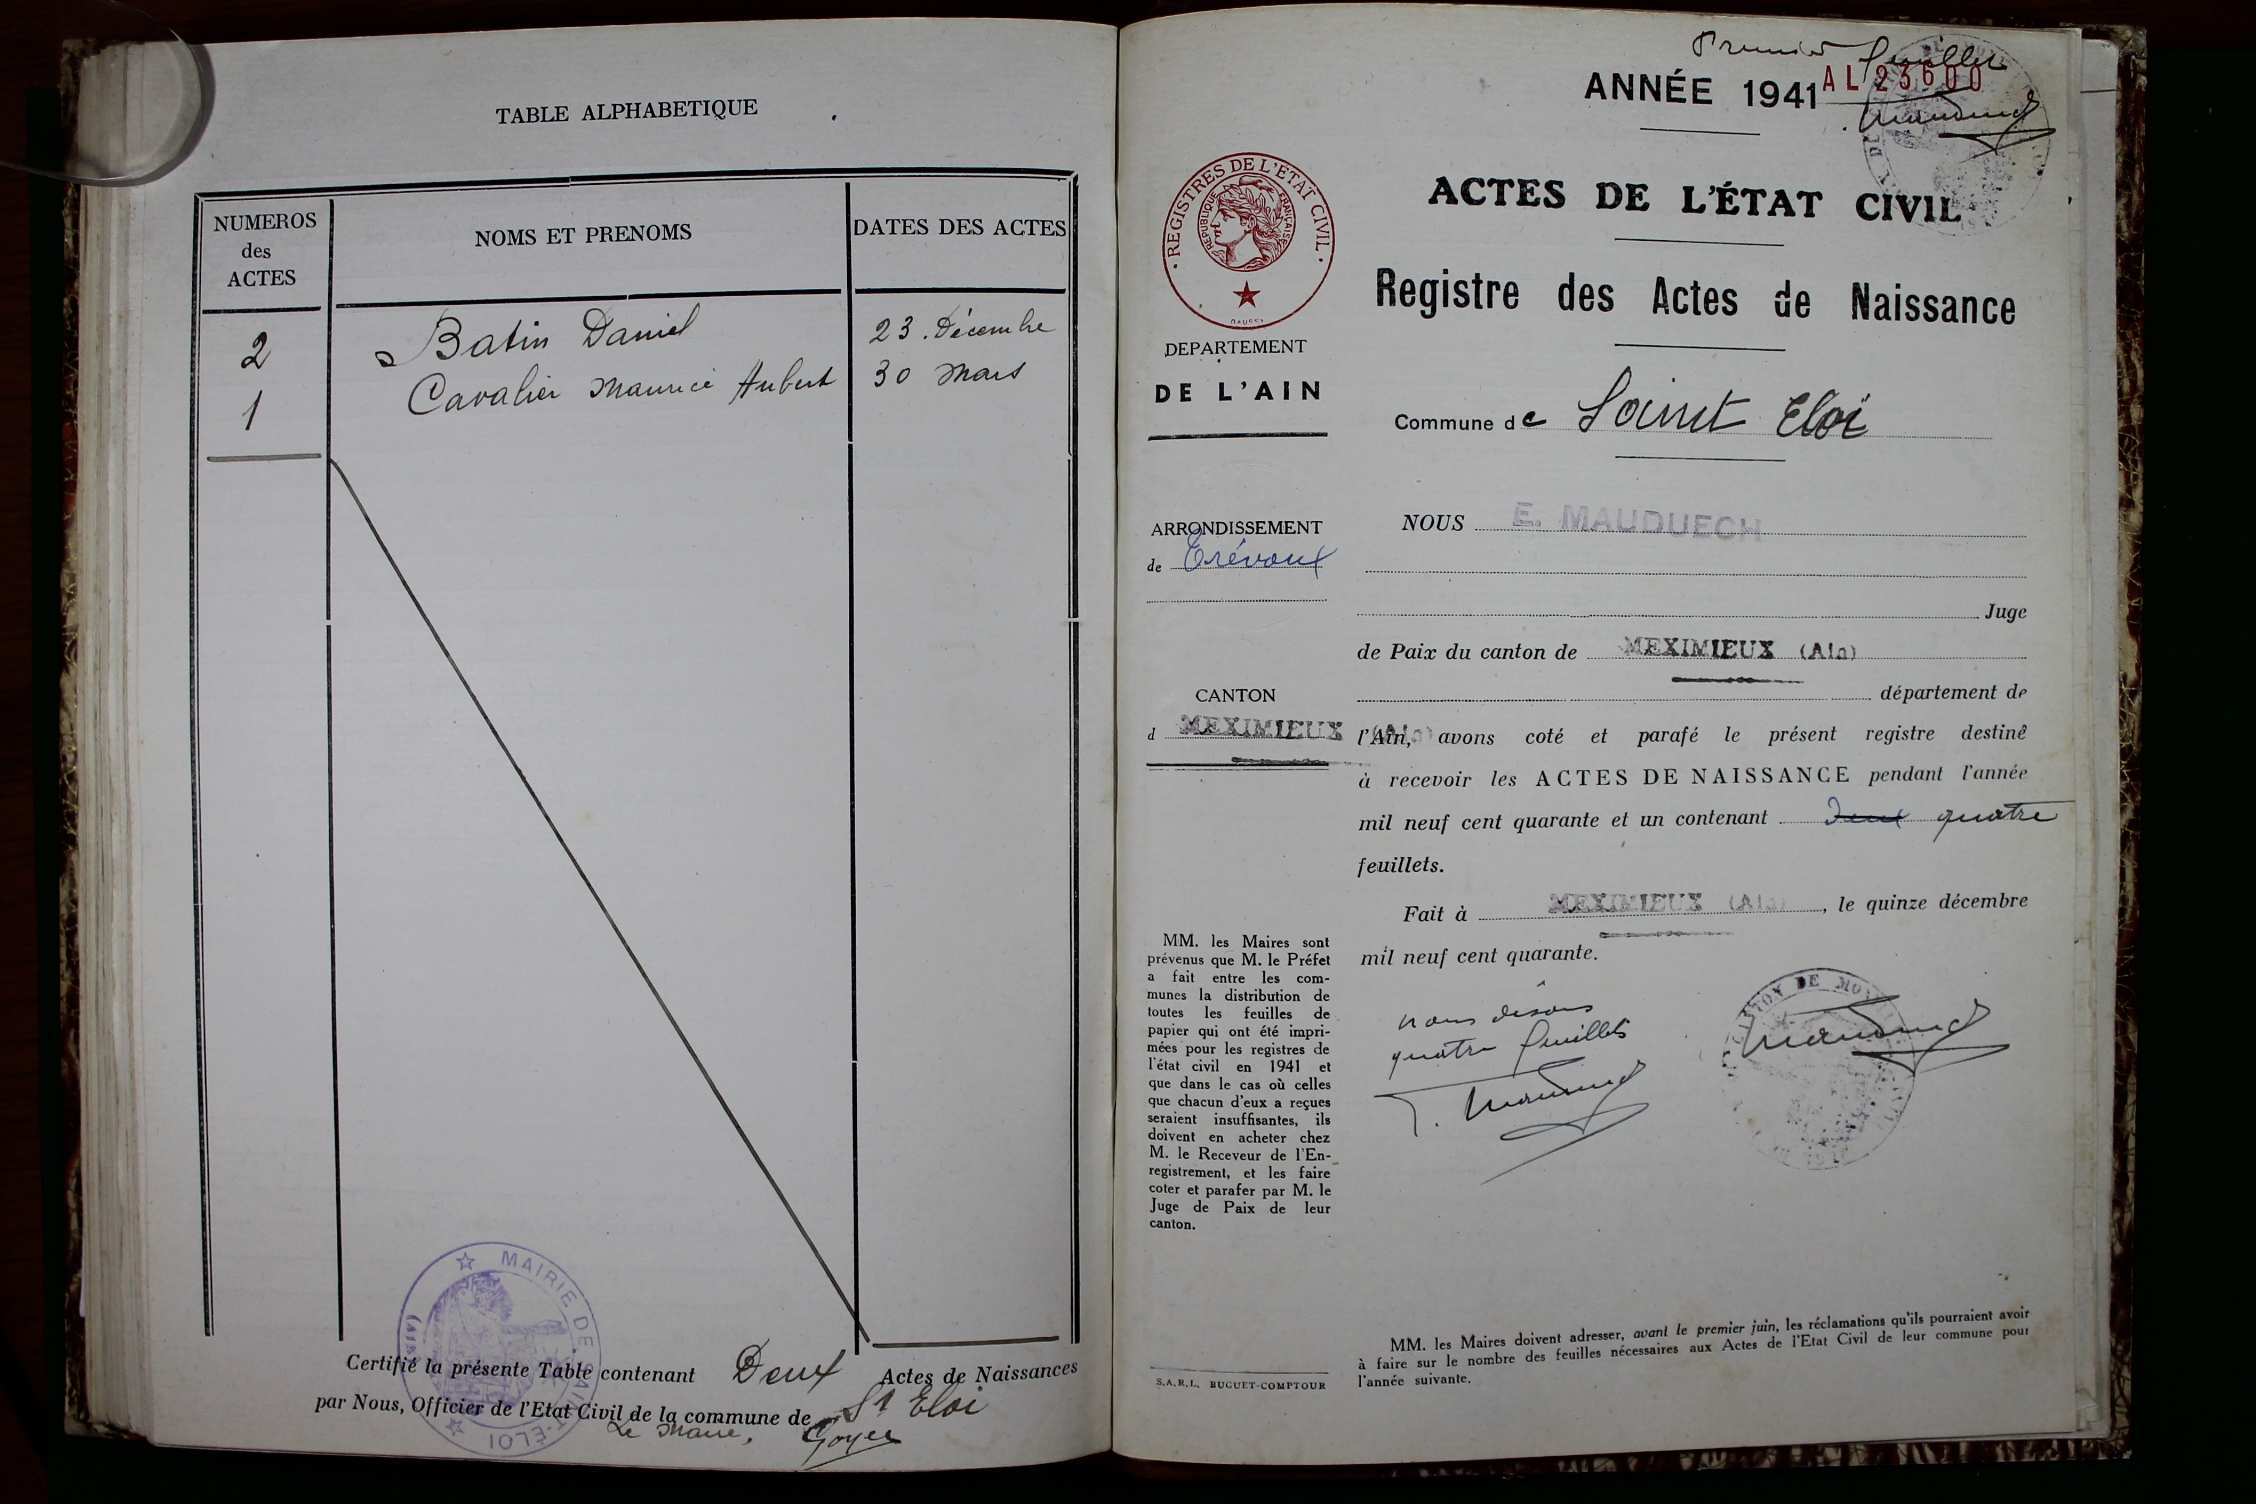 TABLE ALPHABETIQUE
NUMEROS
des
ACTES
NOMS ET PRENOMS
DATES DES ACTES
2 Batin Daniel 23 . Décembre
1 Cavalier Maurice Hubert 30 Mars
MAIRIE DE SAINT-ELOI
(AIN)
Certifié la présente Table contenant Deux Actes de Naissances
par Nous, Officier de l'Etat Civil de la commune de St Eloi
Le Maire, Goyer
Premier feuillet
ANNÉE 1941
AL 23600
REGISTRES DE L'ETAT CIVIL
REPUBLIQUE FRANÇAISE
DEPARTEMENT
DE L'AIN
ARRONDISSEMENT
de Trévoux
CANTON
d MEXIMIEUX (Ain)
MM. les Maires sont
prévenus que M. le Préfet
a fait entre les com-
munes la distribution de
toutes les feuilles de
papier qui ont été impri-
mées pour les registres de
l'état civil en 1941 et
que dans le cas où celles
que chacun d'eux a reçues
seraient insuffisantes, ils
doivent en acheter chez
M. le Receveur de l'En-
registrement, et les faire
coter et parafer par M. le
Juge de Paix de leur
canton.
S.A.R.L. BUGUET-COMPTOUR
ACTES DE L'ÉTAT CIVIL
Registre des Actes de Naissance
Commune de Saint Eloi
NOUS E. MAUDUECH
Juge
de Paix du canton de MEXIMIEUX (Ain)
département de
l'Ain, avons coté et parafé le présent registre destiné
à recevoir les ACTES DE NAISSANCE pendant l'année
mil neuf cent quarante et un contenant Deux quatre
feuillets.
Fait à MEXIMIEUX (Ain), le quinze décembre
mil neuf cent quarante.
nous disons
quatre feuillets
CANTON DE
MM. les Maires doivent adresser, avant le premier juin, les réclamations qu'ils pourraient avoir
à faire sur le nombre des feuilles nécessaires aux Actes de l'Etat Civil de leur commune pour
l'année suivante.